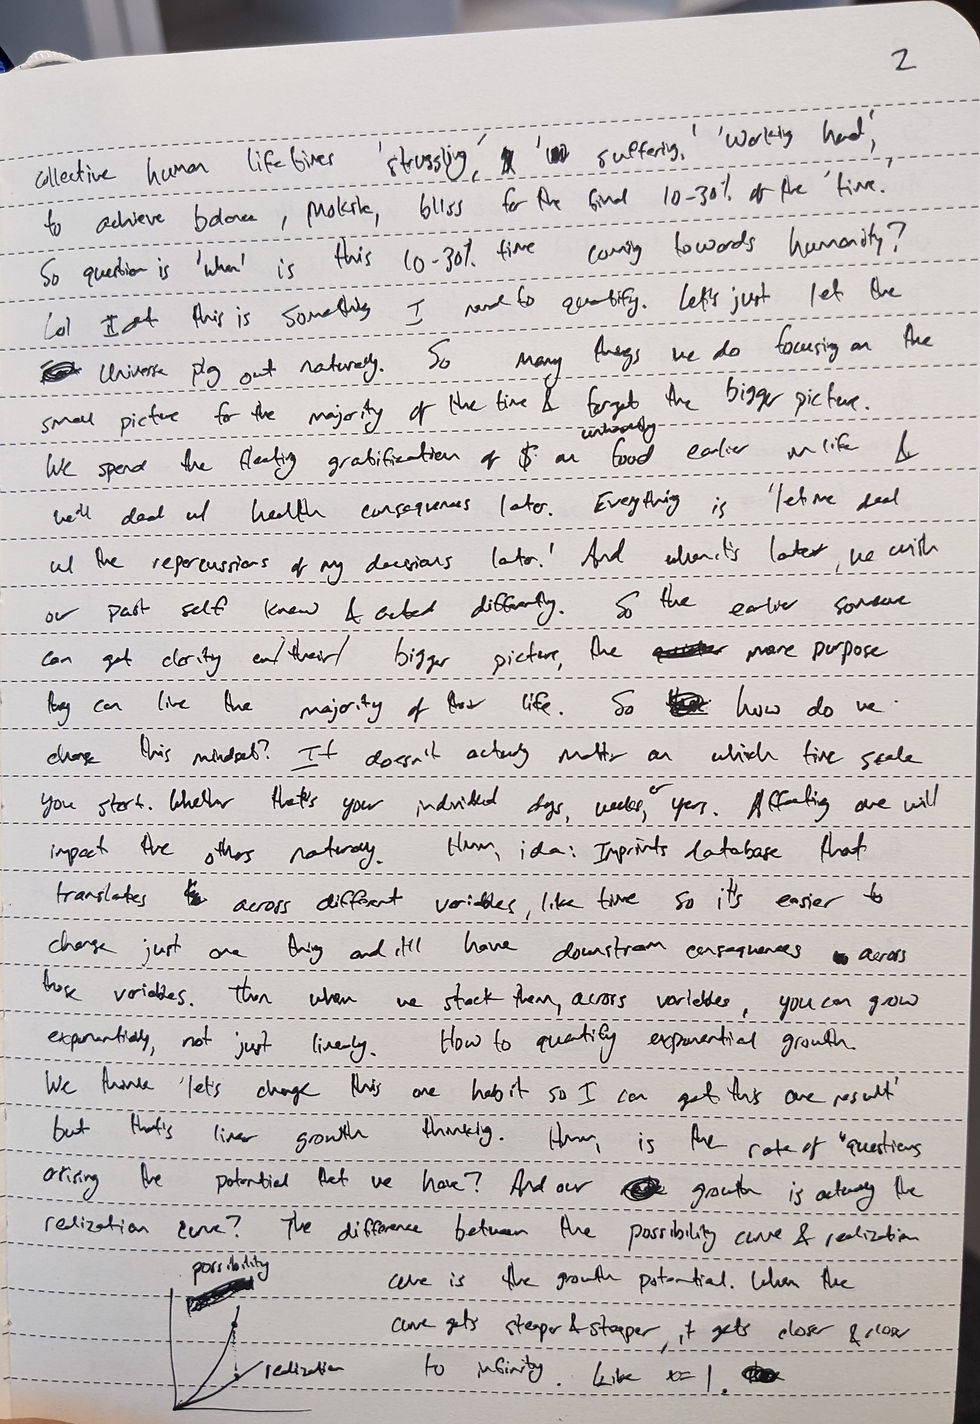 2
collective human lifetimes 'struggling', ' suffering,' 'working hard',
to achieve balance, Moksh, bliss for the final 10-30% of the 'time.'
So question is 'when' is this 10-30% time coming towards humanity?
Lol this is something I need to quantify. Let's just let the
universe play out naturally. So many things we do focusing on the
small picture for the majority of the time & forget the bigger picture.
unhealthy
We spend the fleeting gratification of $ on food earlier in life &
we'll deal w/ health consequences later. Everything is 'let me deal
w/ the repercussions of my decisions later.' And when it's later, we wish
our past self knew & acted differently. So the earlier someone
can get clarity on/their/ bigger picture, the more purpose
they can live the majority of their life. So how do we
change this mindset? It doesn't actually matter on which time scale
you start. Whether that's your individual days, weeks, or years. Affecting one will
impact the others naturally. Hmm, idea: Imprints database that
translates across different variables, like time so it's easier to
change just one thing and still have downstream consequences across
those variables. Then when we stack them, across variables, you can grow
exponentially, not just linearly. How to quantify exponential growth.
We think 'let's change this one habit so I can get this one result'
but that's linear growth thinking. Hmm, is the rate of "questions
arising the potential that we have? And our growth is actually the
realization curve? The difference between the possibility curve & realization
curve is the growth potential. When the
curve gets steeper & steeper, it gets closer & closer
to infinity. Like x=1.
possibility
realization